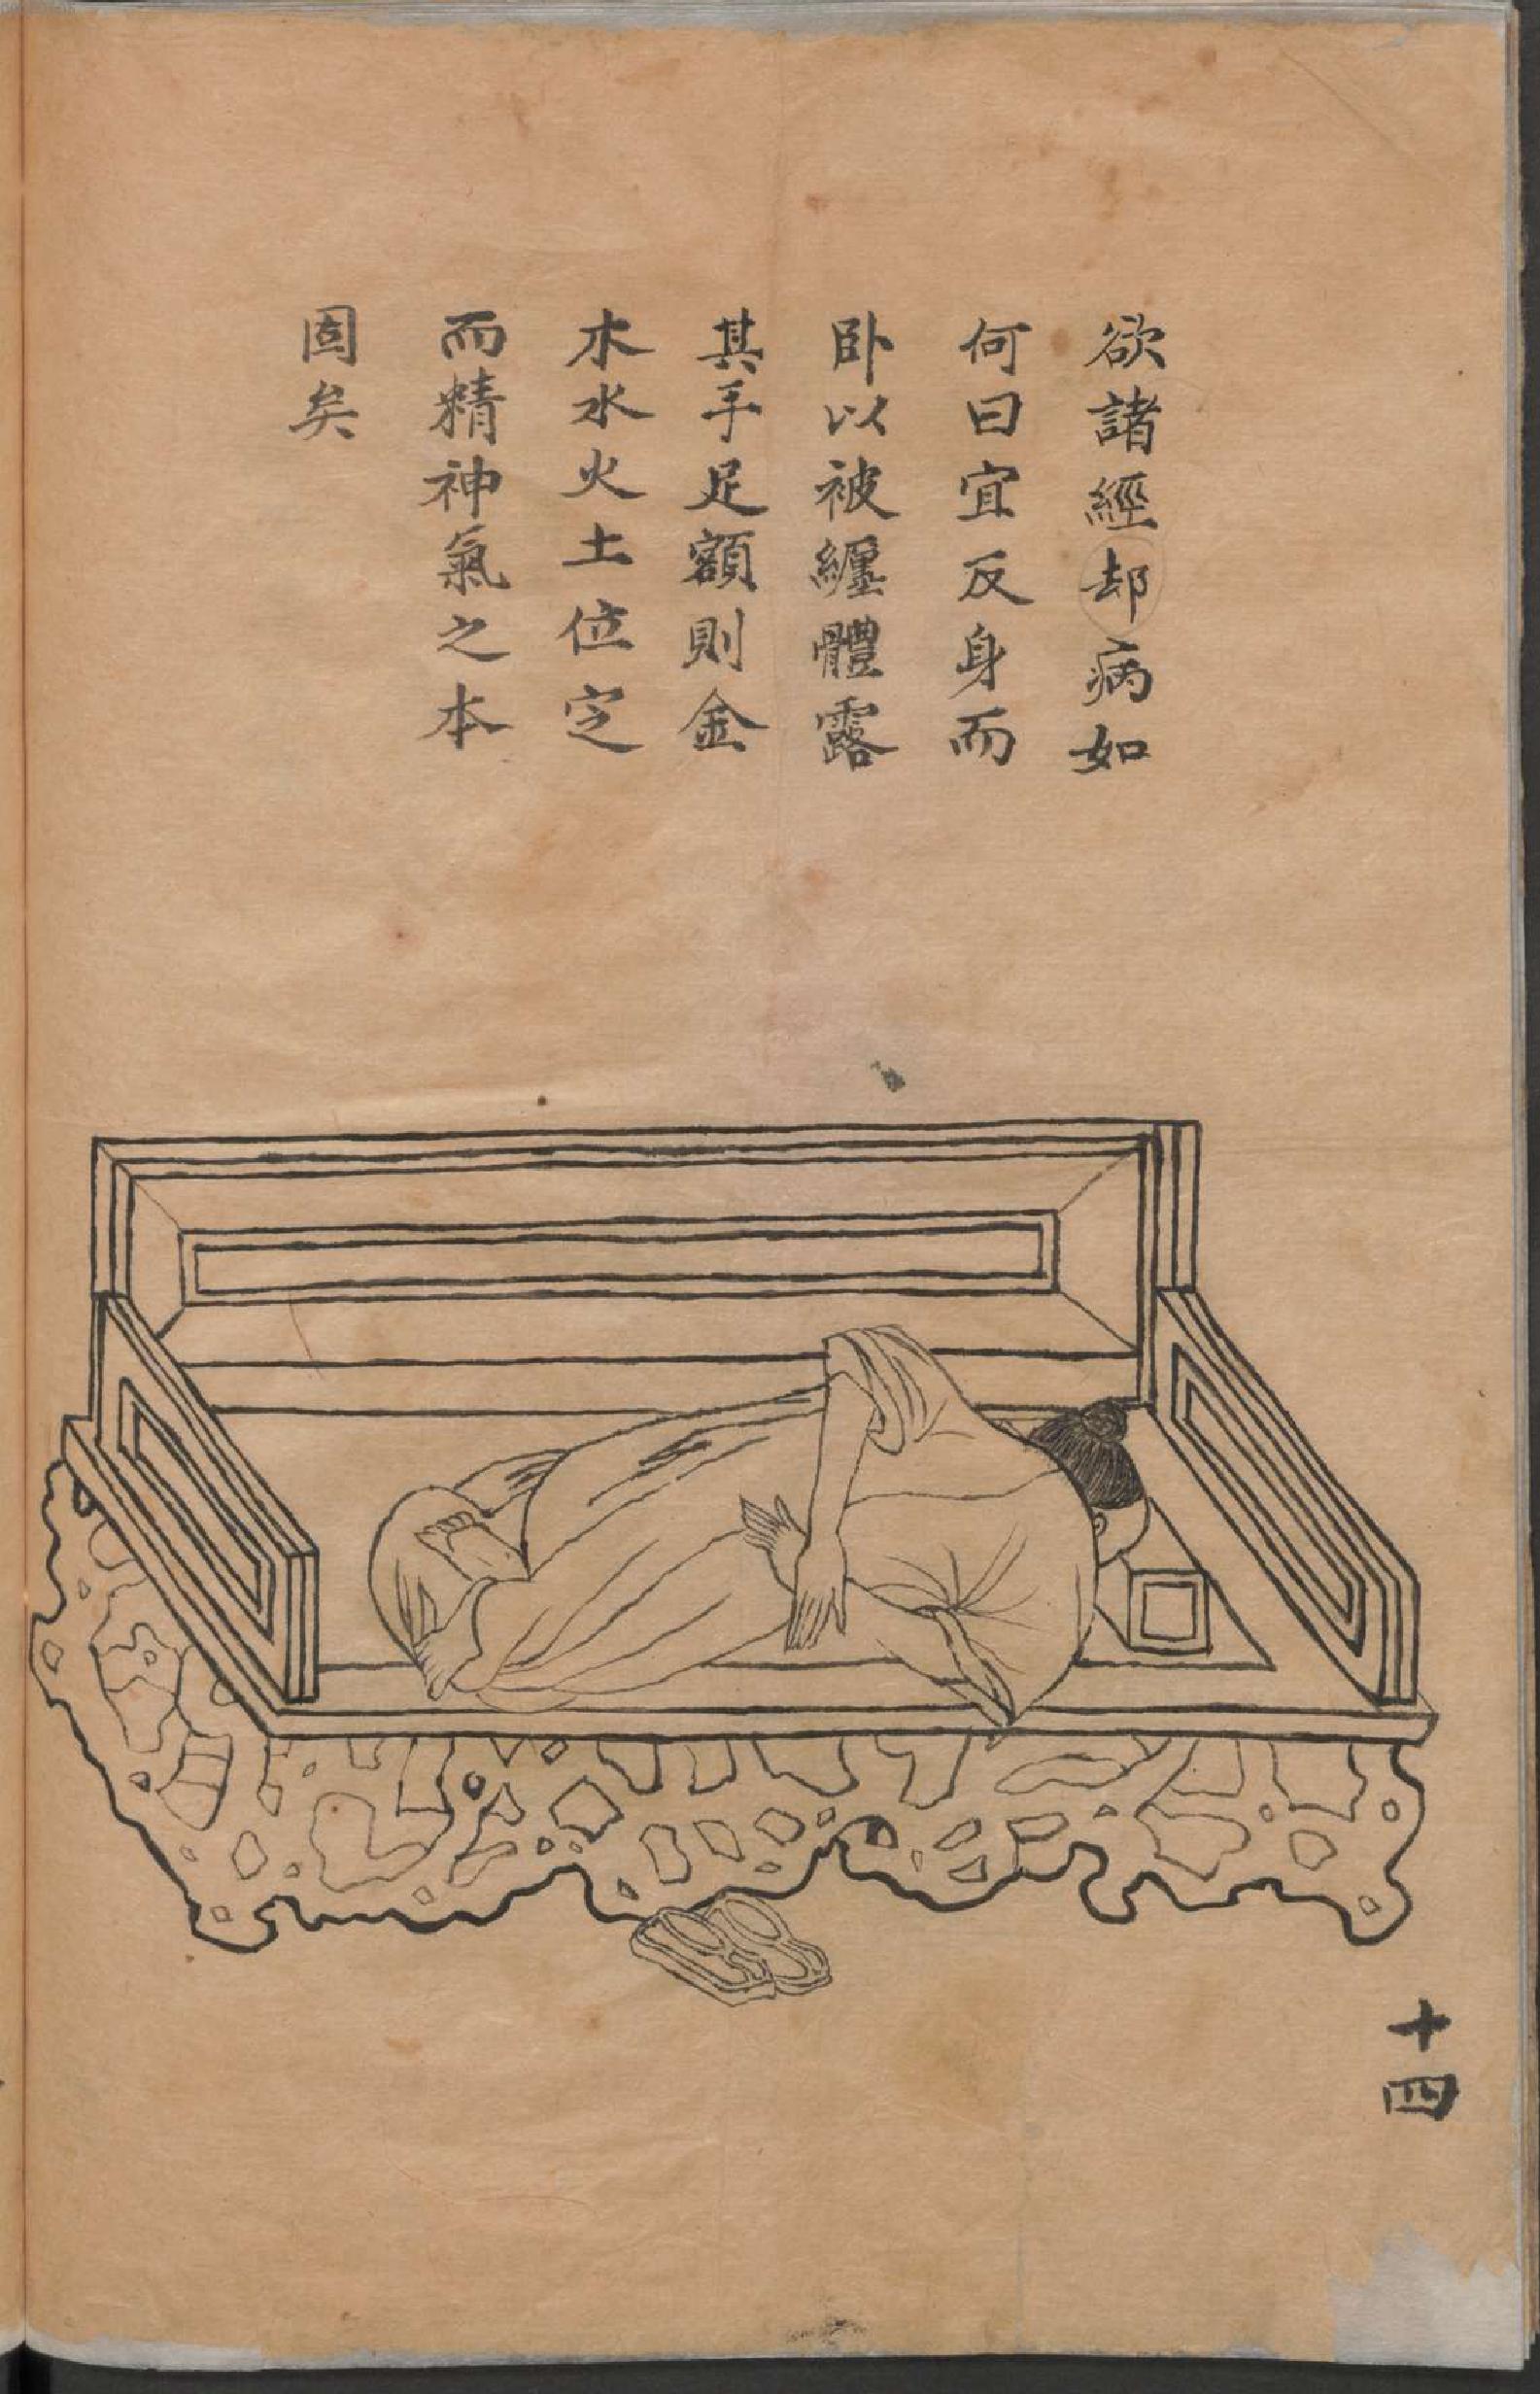 欲諸經却病如
何曰宜反身而
卧以被纏體露
其手足額則金
木水火土位定
而精神氣之本
固矣
十四